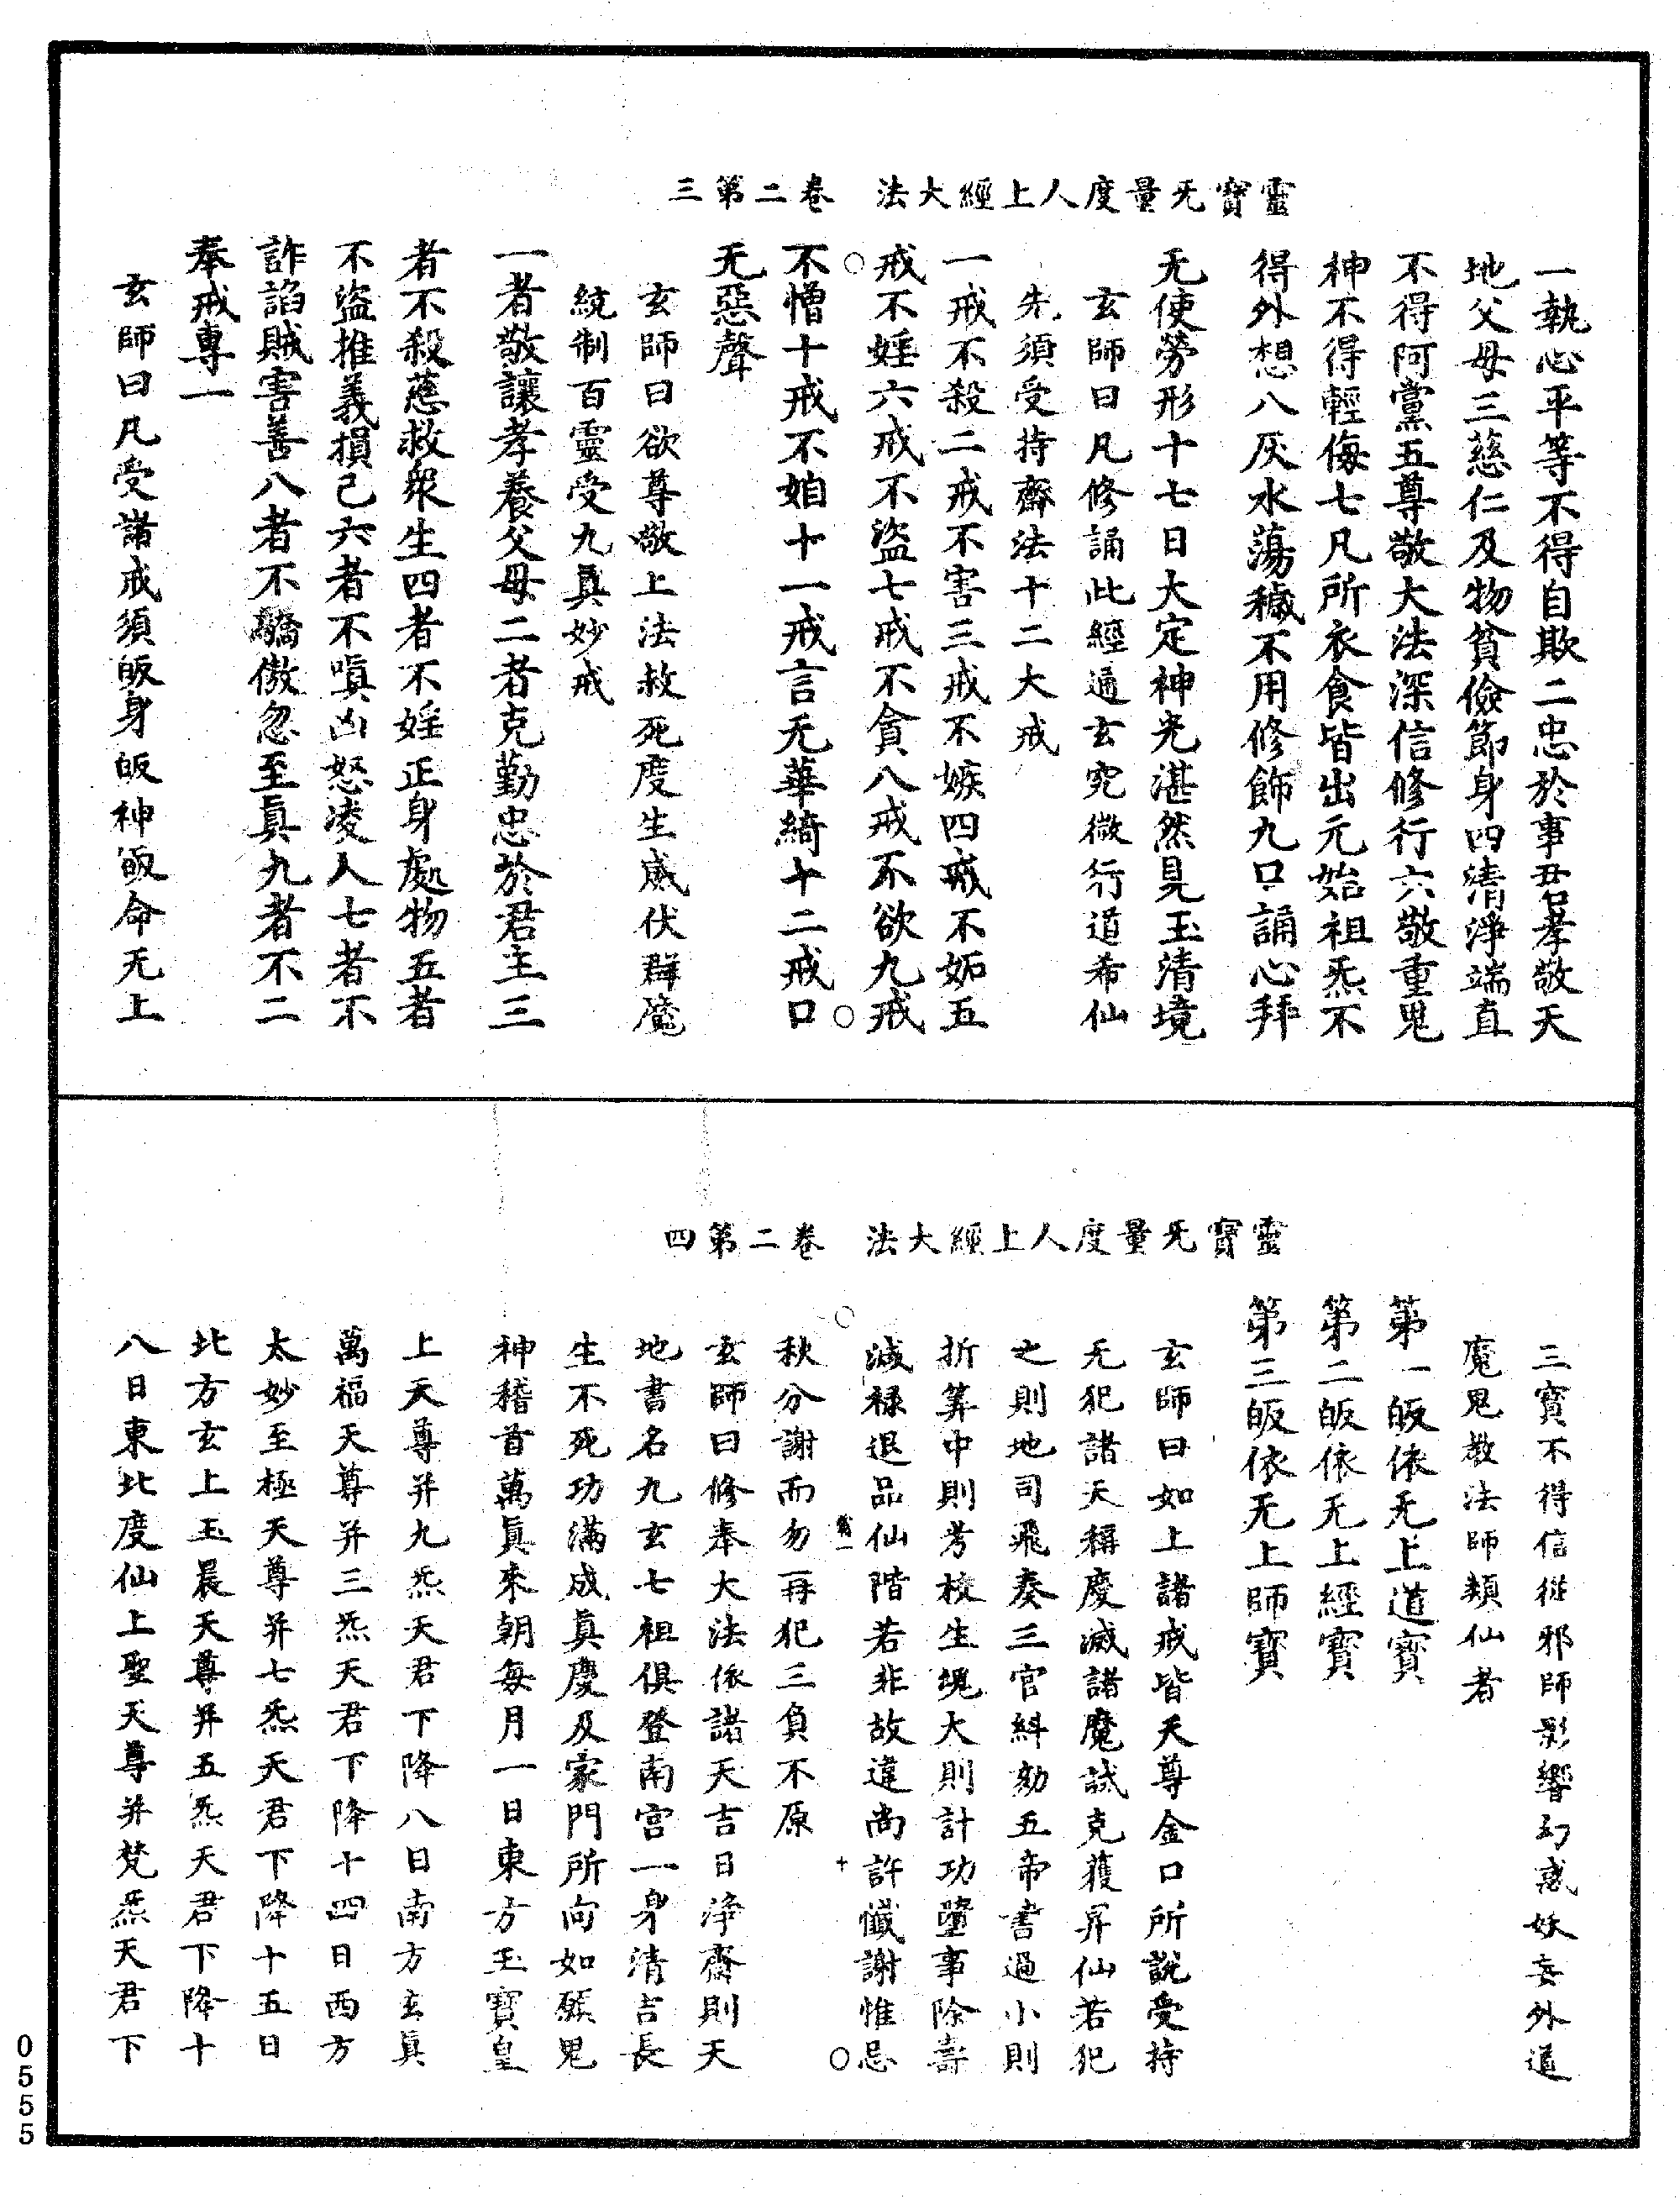 靈寶无量度人上經大法　卷二第三
一執心平等不得自欺二忠於事君孝敬天
地父母三慈仁及物貧儉節身四清淨端直
不得阿黨五尊敬大法深信修行六敬重鬼
神不得輕侮七凡所衣食皆出元始祖炁不
得外想八灰水蕩穢不用修飾九口誦心拜
无使勞形十七日大定神光湛然見玉清境
玄師曰凡修誦此經過玄究微行道希仙
先須受持齋法十二大戒
一戒不殺二戒不害三戒不嫉四戒不妬五
戒不婬六戒不盜七戒不貪八戒不欲九戒
不憎十戒不妲十一戒言无華綺十二戒口
无惡聲
玄師曰欲尊敬上法救死度生威伏群魔
統制百靈受九真妙戒
一者敬讓孝養父母二者克勤忠於君主三
者不殺慈救眾生四者不婬正身處物五者
不盜推義損己六者不嗔凶怒凌人七者不
詐諂賊害善八者不驕傲忽至真九者不二
奉戒專一
玄師曰凡受諸戒須皈身皈神皈命无上
靈寶无量度人上經大法　卷二第四
三寶不得信從邪師影響幻惑妖妄外道
魔鬼教法師類仙者
第一皈依无上道寶
第二皈依无上經寶
第三皈依无上師寶
玄師曰如上諸戒皆天尊金口所說受持
无犯諸天稱慶滅諸魔試克獲昇仙若犯
之則地司飛奏三官糾劾五帝書過小則
折筭中則考校生魂大則計功墮事除壽
減祿退品仙階若非故違尚許懺謝惟忌
秋分謝而勿再犯三負不原
玄師曰修奉大法依諸天吉日淨齋則天
地書名九玄七祖俱登南宮一身清吉長
生不死功滿成真慶及家門所向如願鬼
神稽首萬真來朝每月一日東方玉寶皇
上天尊并九炁天君下降八日南方玄真
萬福天尊并三炁天君下降十四日西方
太妙至極天尊并七炁天君下降十五日
北方玄上玉晨天尊并五炁天君下降十
八日東北度仙上聖天尊并梵炁天君下
0555